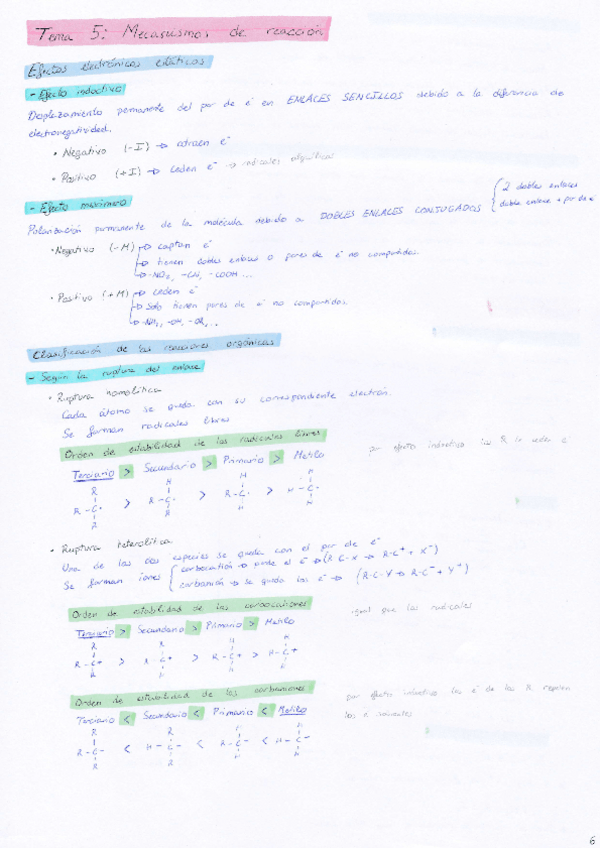 Tema 5: Mecanismos de reacción
Efectos electrónicos estáticos
- Efecto inductivo
Desplazamiento permanente del par de e⁻ en ENLACES SENCILLOS debido a la diferencia de
electronegatividad.
• Negativo (-I) → atraen e⁻
• Positivo (+I) → ceden e⁻ → radicales alquílicos
- Efecto mesómero
Polarización permanente de la molécula debido a DOBLES ENLACES CONJUGADOS { 2 dobles enlaces
doble enlace + par de e⁻
• Negativo (-M) → captan e⁻
→ tienen dobles enlaces o pares de e⁻ no compartidos.
→ -NO₂, -CN, -COOH...
• Positivo (+M) → ceden e⁻
→ Solo tienen pares de e⁻ no compartidos.
→ -NH₂, -OH, -OR, ...
Clasificación de las reacciones orgánicas
- Según la ruptura del enlace
• Ruptura homolítica
Cada átomo se queda con su correspondiente electrón.
Se forman radicales libres
Orden de estabilidad de los radicales libres
por efecto inductivo los R le ceden e⁻
Terciario > Secundario > Primario > Metilo
R R H H
R-C· > R-C· > R-C· > H-C·
R H H H
• Ruptura heterolítica
Una de las dos especies se queda con el par de e⁻
Se forman iones { carbocatión → pierde el e⁻ → (R-C-X → R-C⁺ + X⁻)
carbanión → se queda los e⁻ → (R-C-Y → R-C⁻ + Y⁺)
Orden de estabilidad de los carbocationes
igual que los radicales
Terciario > Secundario > Primario > Metilo
R R H H
R-C+ > R-C+ > R-C+ > H-C+
R H H H
Orden de estabilidad de los carbaniones
por efecto inductivo los e⁻ de los R repelen
los e⁻
Terciario < Secundario < Primario < Metilo
R R H H
R-C- < H-C- < R-C- < H-C-
R R H H
6